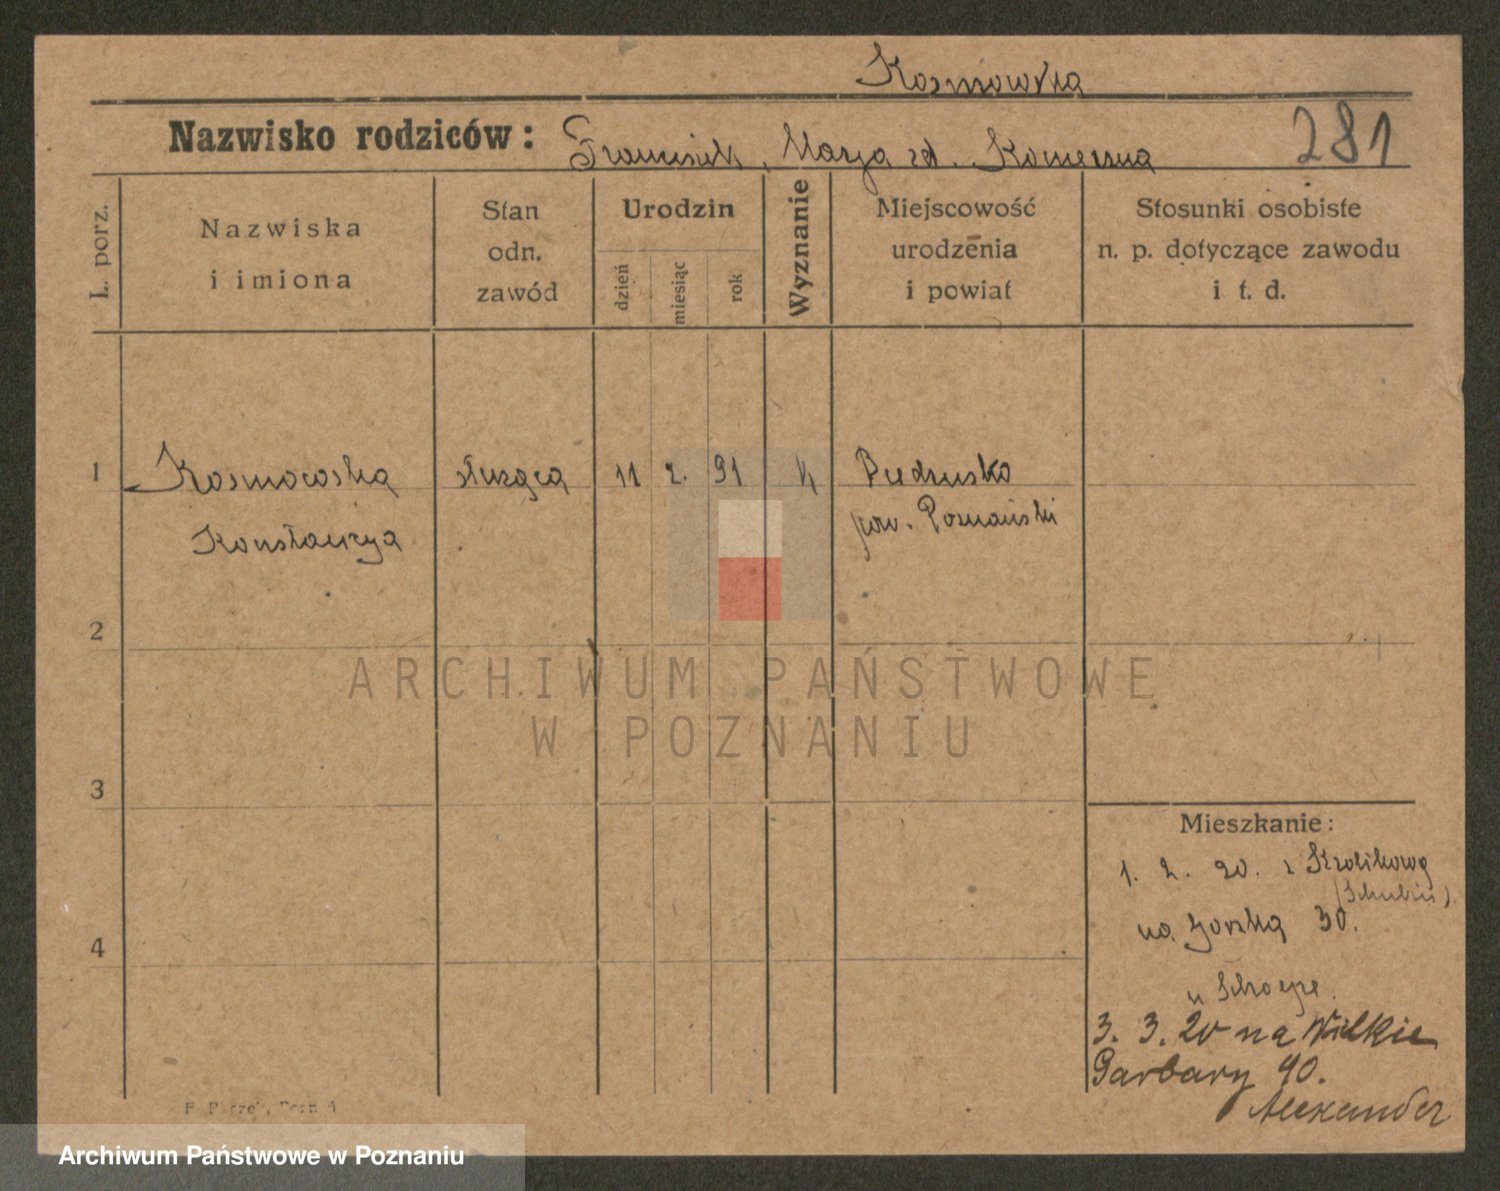 Kosmowska
Nazwisko rodziców: Franciszek, Marja zd. Konieczna
281
L. porz.
Nazwiska
i imiona
Stan
odn.
zawód
Urodzin
dzień
miesiąc
rok
Wyznanie
Miejscowość
urodzenia
i powiat
Stosunki osobiste
n. p. dotyczące zawodu
i t. d.
1
Kosmowska
służąca
11
2.
91
k
Biedrusko
Konstancya
pow. Poznański
2
ARCHIWUM PAŃSTWOWE
W POZNANIU
3
Mieszkanie:
1. 2. 20. z Królikowa
(Schubin).
na Górską 30.
4
u
3. 3. 20 na Wielkie
Garbary 40.
Alexander
Archiwum Państwowe w Poznaniu